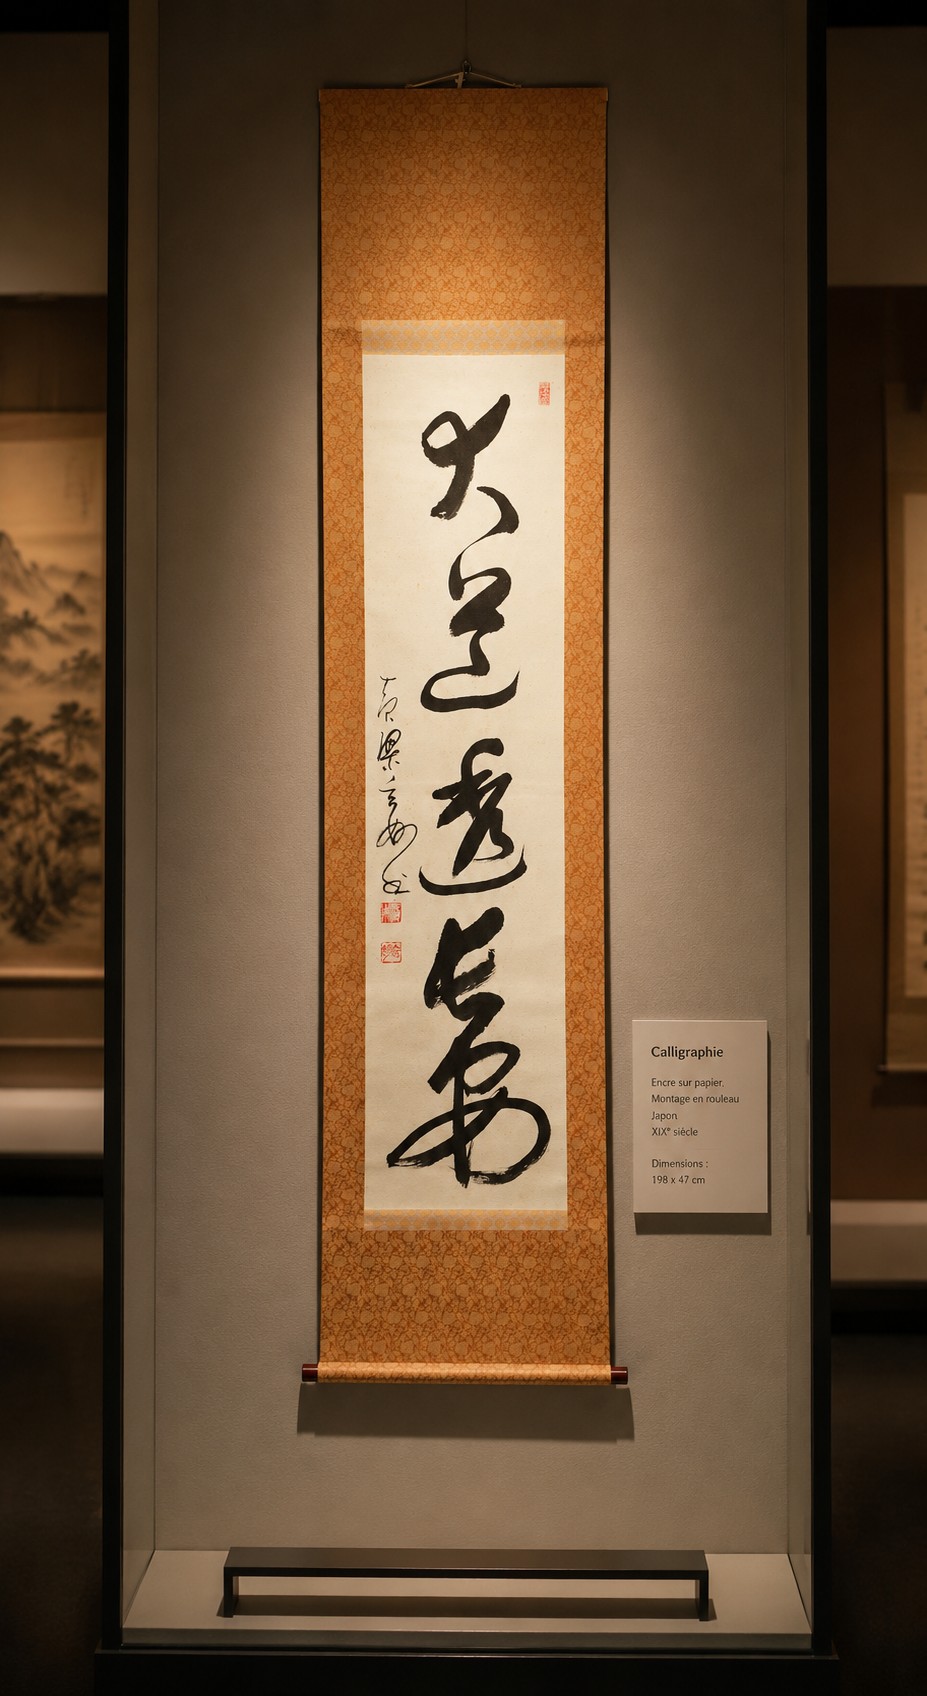 大道透長安
Calligraphie
Encre sur papier.
Montage en rouleau
Japon
XIXᵉ siècle
Dimensions :
198 x 47 cm